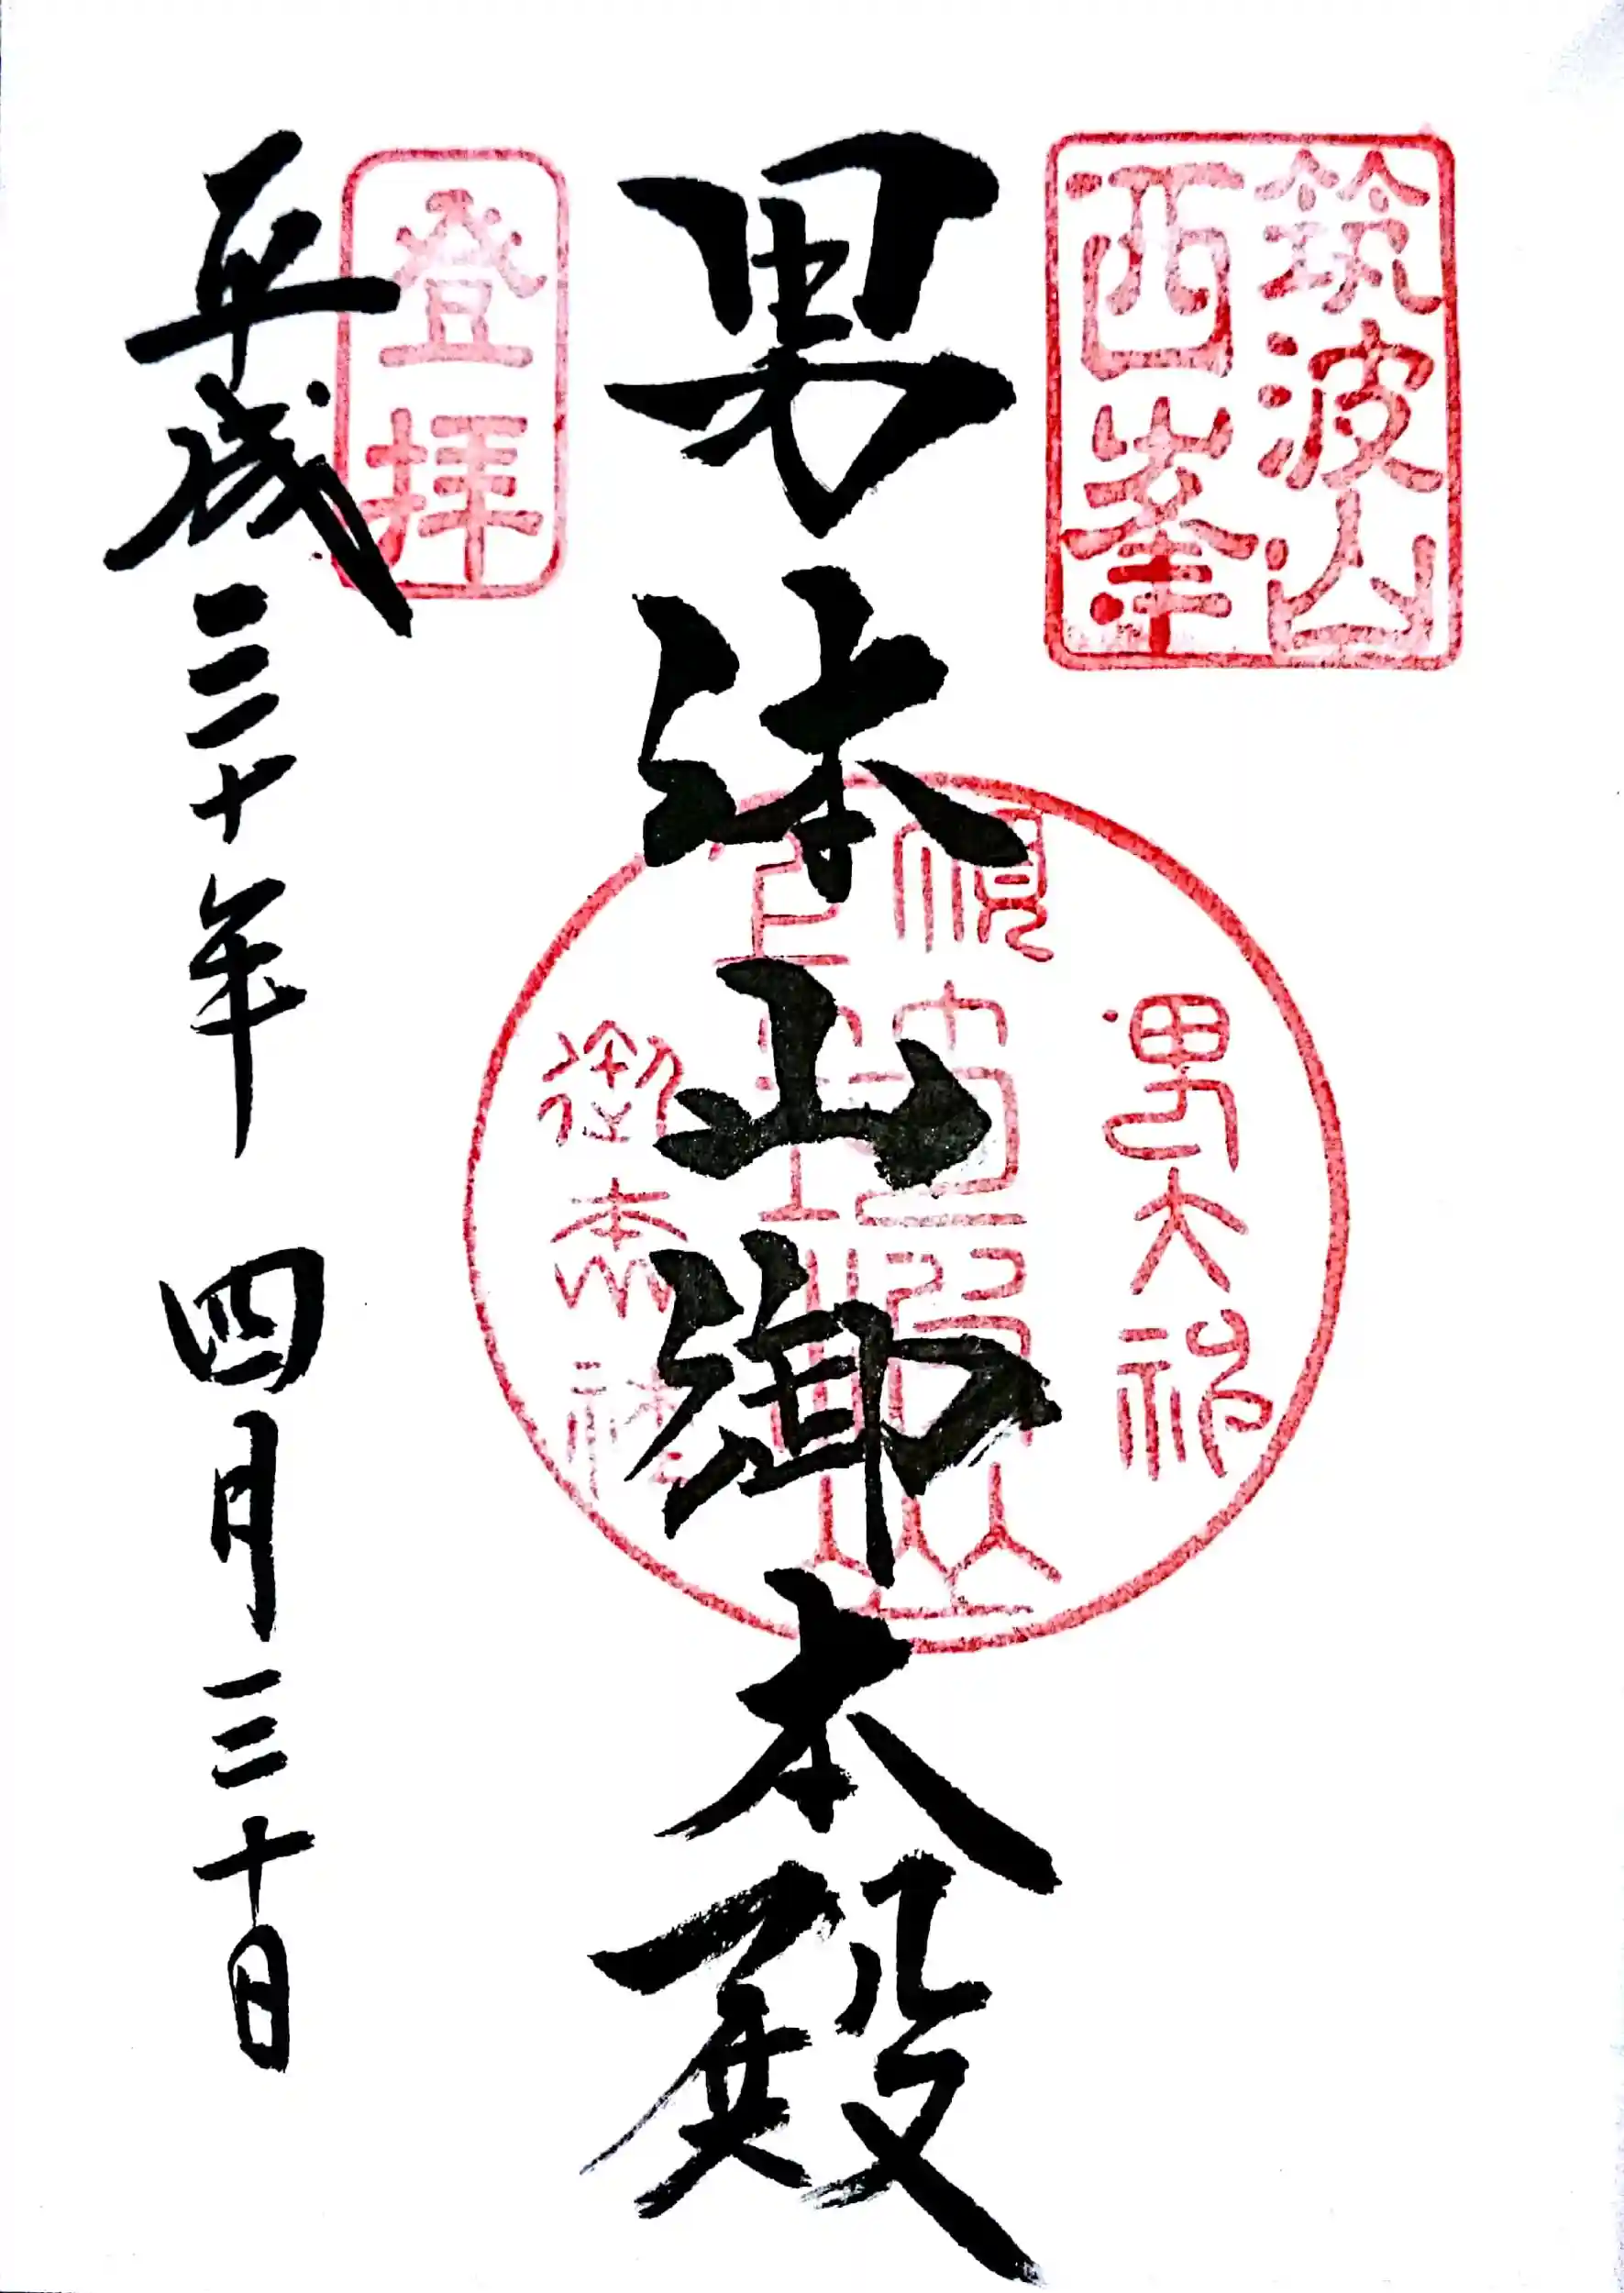 筑波山
西峯
男体山御本殿
男大神
御本社
登拝
平成三十年 四月三十日